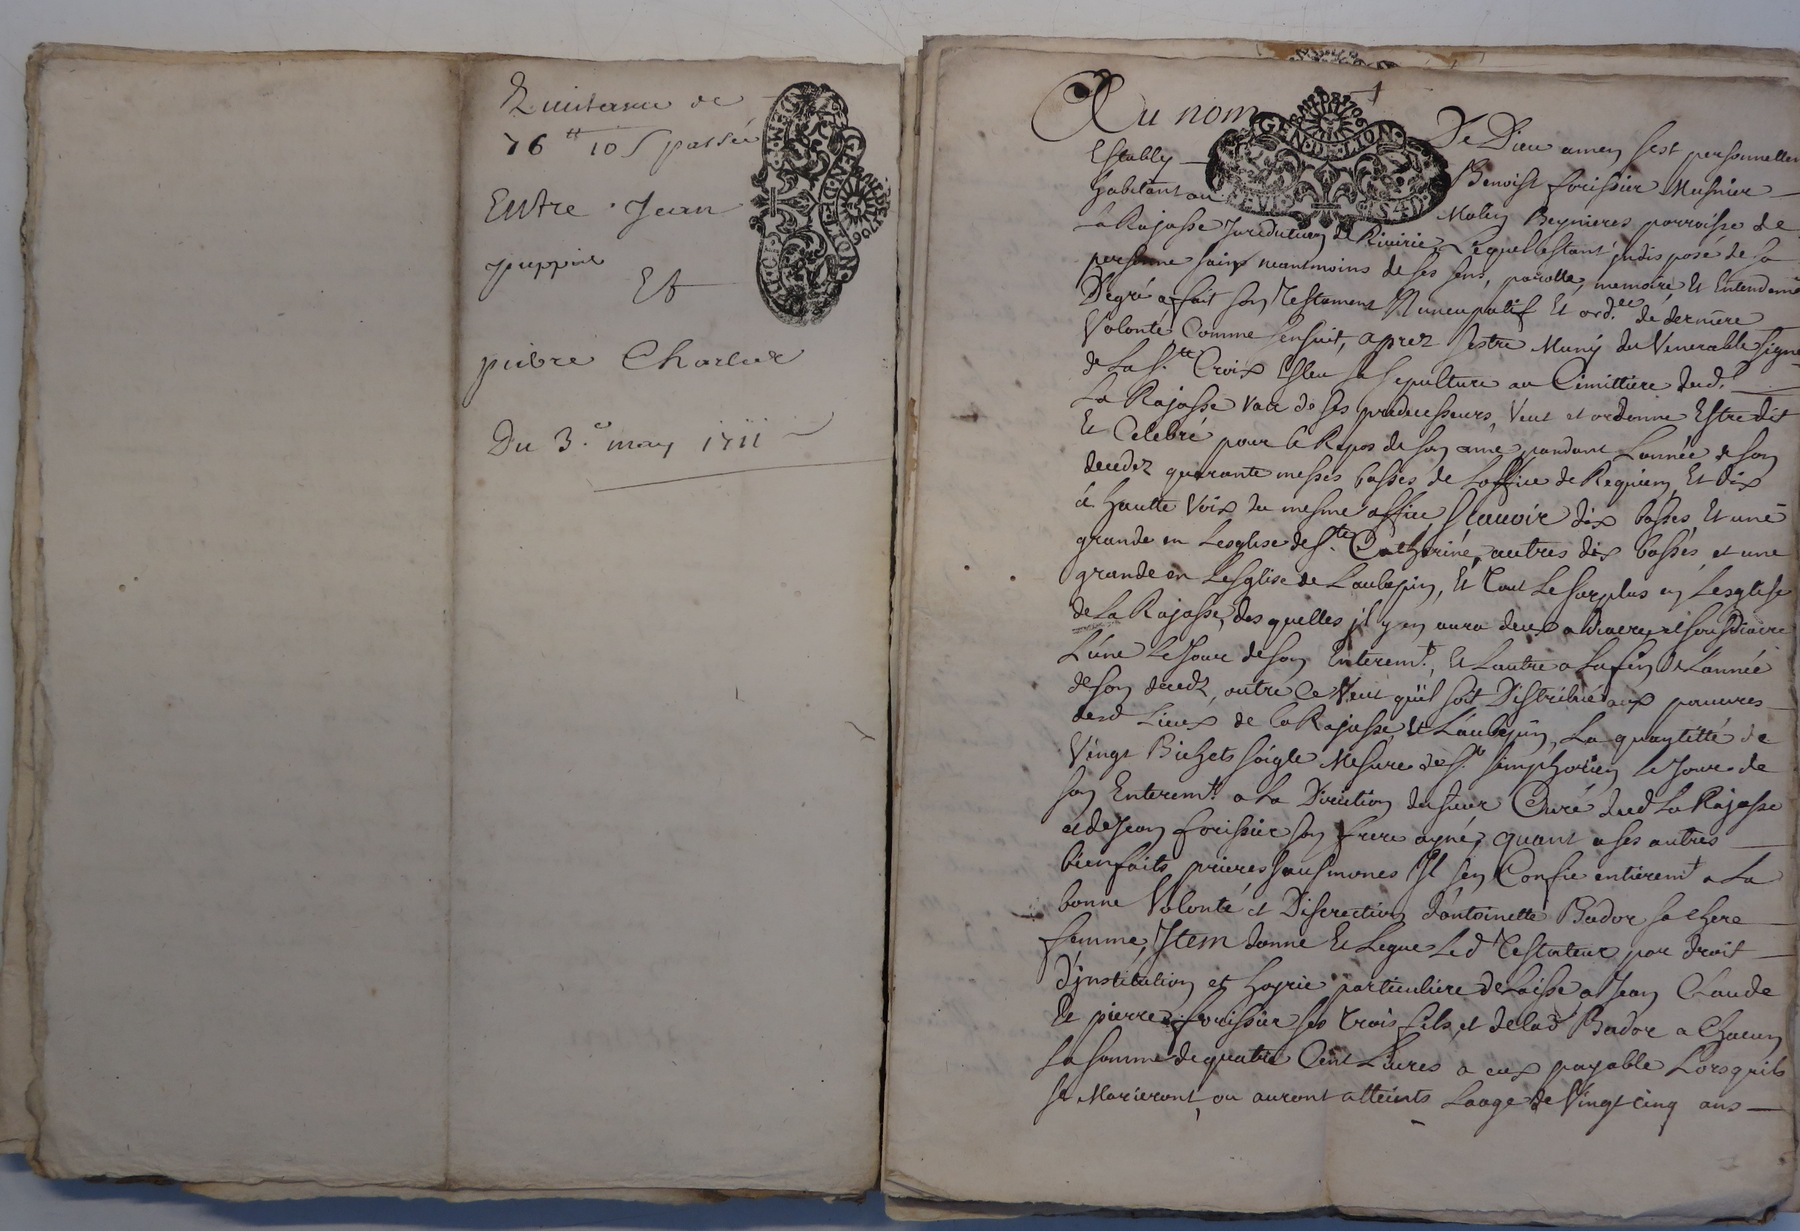 Quittance de
76 ₶ 10 s passée
Entre Jean
puppier
Et
pierre Charlier
Du 3.e may 1711
Au nom De Dieu amen s'est personnellem
Estably Benoist forissier Musnier
habitant au Molin Beynieres parroisse de
La Rajasse Jurediction de Riuirie, Lequel estant jndisposé de sa
personne sains neantmoins de ses sens, parolle, memoire, Et Entendemt
De gré a fait son Testament Nuncupatif Et ord.ce de derniere
Volonté Comme s'ensuit, aprez s'estre Muny du Venerable signe
de La S.te Croix Esleu sa sepulture au Cimittiere dud.
La Rajasse vas de ses predecesseurs, Veut et ordonne Estre dit
Et Celebré pour le Repos de son ame pandant L'année de son
decedz quarante messes basses de L'office de Requiem, Et dix
a haulte Voix du mesme office, sçauoir dix basses, Et une
grande en Lesglise de S.te Catherine, autres dix basses, et une
grande en Lesglise de Laubepin, Et Tout Le surplus en Lesglise
de La Rajasse, desquelles jl y en aura deux a diacre et sousdiacre
L'une Le Jour de son Enterem.t, Et Lautre a La fin de Lannée
de son decedz, outre Ce Veut qu'il soit Distribué aux pauures
desd Lieux de La Rajasse Et Laubepin, La quantitté de
Vingt Bichets soigle Mesure de S.t simphorien Le Jour de
son Enterem.t a La Direction du sieur Curé dud La Rajasse
et de Jean forissier son frere ayné, quant a ses autres
bienfaits prieres ausmones Jl s'en Confie entierem.t a La
bonne Volonté et Discrection d'antoinette Bador sa chere
femme, Jtem donne Et Legue Le d Testateur par droit
d'jnstitution et hoyrie particuliere delaisse a Jean Claude
Et pierre forissier ses trois fils, et de lad Bador a Chacun
La somme de quatre Cent Liures a eux payable Lorsquils
se Marieront, ou auront atteints Laage de Vingt cinq ans